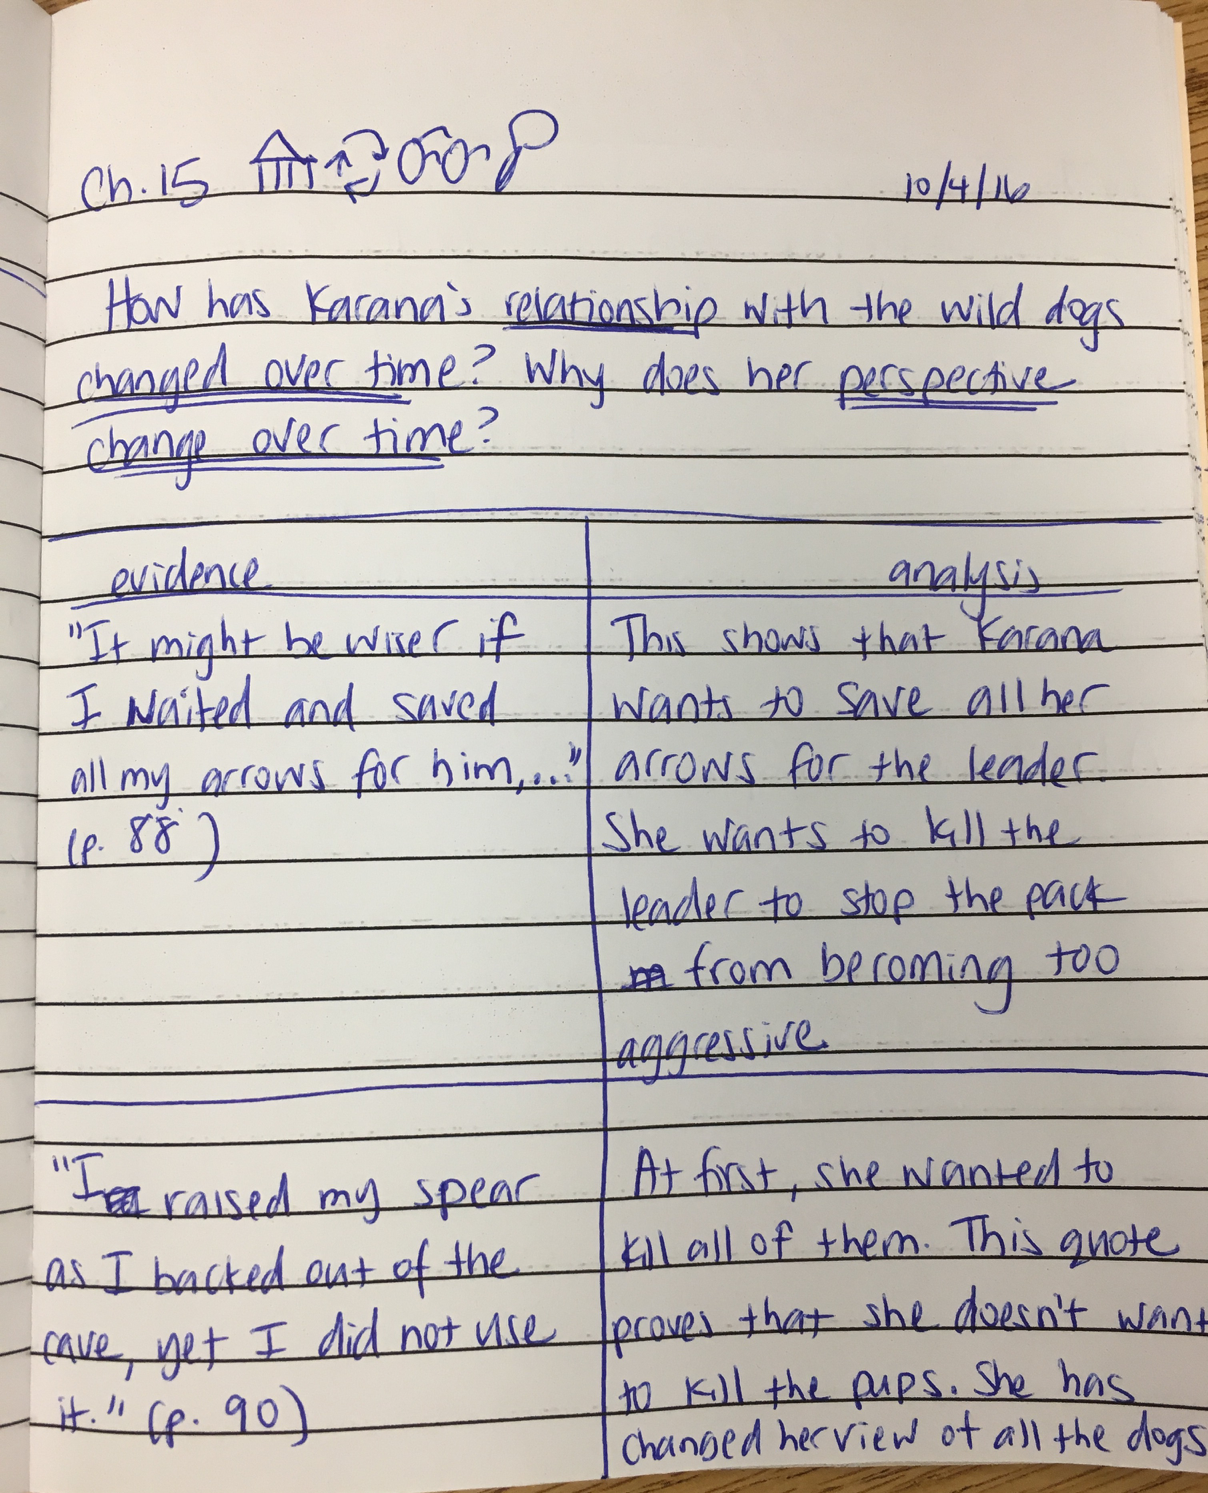 Ch. 15
10/4/16
How has Karana's relationship with the wild dogs
changed over time? Why does her perspective
change over time?
evidence
"It might be wiser if
I waited and saved
all my arrows for him,..."
(p. 88)
analysis
This shows that Karana
wants to save all her
arrows for the leader.
She wants to kill the
leader to stop the pack
from becoming too
aggressive.
"I raised my spear
as I backed out of the
cave, yet I did not use
it." (p. 90)
At first, she wanted to
kill all of them. This quote
proves that she doesn't want
to kill the pups. She has
changed her view of all the dogs